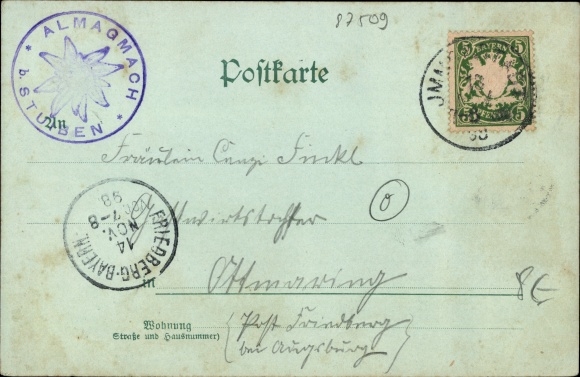 87509
ALMAGMACH
b. STUBEN
Postkarte
5 BAYERN 5
5 PFENNIG 5
An
Fräulein Cenzi Finkl
FRIEDBERG-BAYERN
14 NOV. 7-8 98
Gastwirtstochter
in Ottmaring
8€
Wohnung
(Straße und Hausnummer)
(Post Friedberg
bei Augsburg)